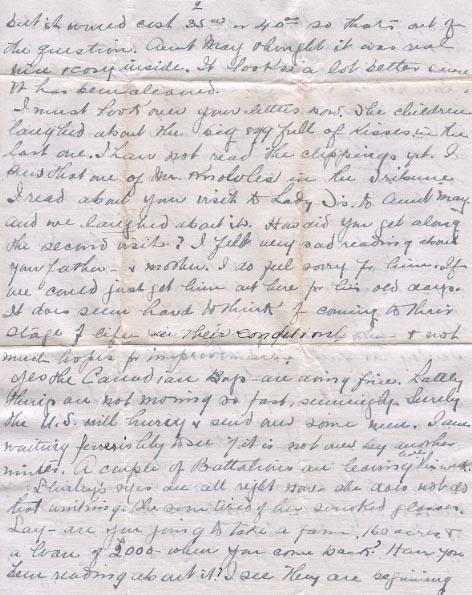 2
but it would cost 35.00 or 40.00 so that's out of
the question. Aunt May thought it was real
nice & cosy inside. It looks a lot better since
it has been cleaned.
I must look over your letters now. The children
laughed about the big egg full of kisses in the
last one. I have not read the clippings yet. I
that one of Mr. in the Tribune
I read about your visit to Lady to Aunt May
and we laughed about it. How did you get along
the second visit? I felt very sad reading about
your father - & mother. I do feel sorry for him. If
we could just get him out here for his old days.
It does seem hard to think of coming to their
stage of life in their condition & not
much hopes for improvement.
Yes the Canadian Boys are doing fine. Lately
things are not moving so fast, seemingly. Surely
the U.S. will hurry & send over some men. I am
waiting feverishly to see if it is not over by another
winter. A couple of Battalions are leaving here this week
Shirley's eyes are all right now she does not do
that winking. She soon tired of her smoked glasses.
Say - are you going to take a farm, 160 acres &
a loan of 2000 when you come back? Have you
been reading about it? I see they are beginning